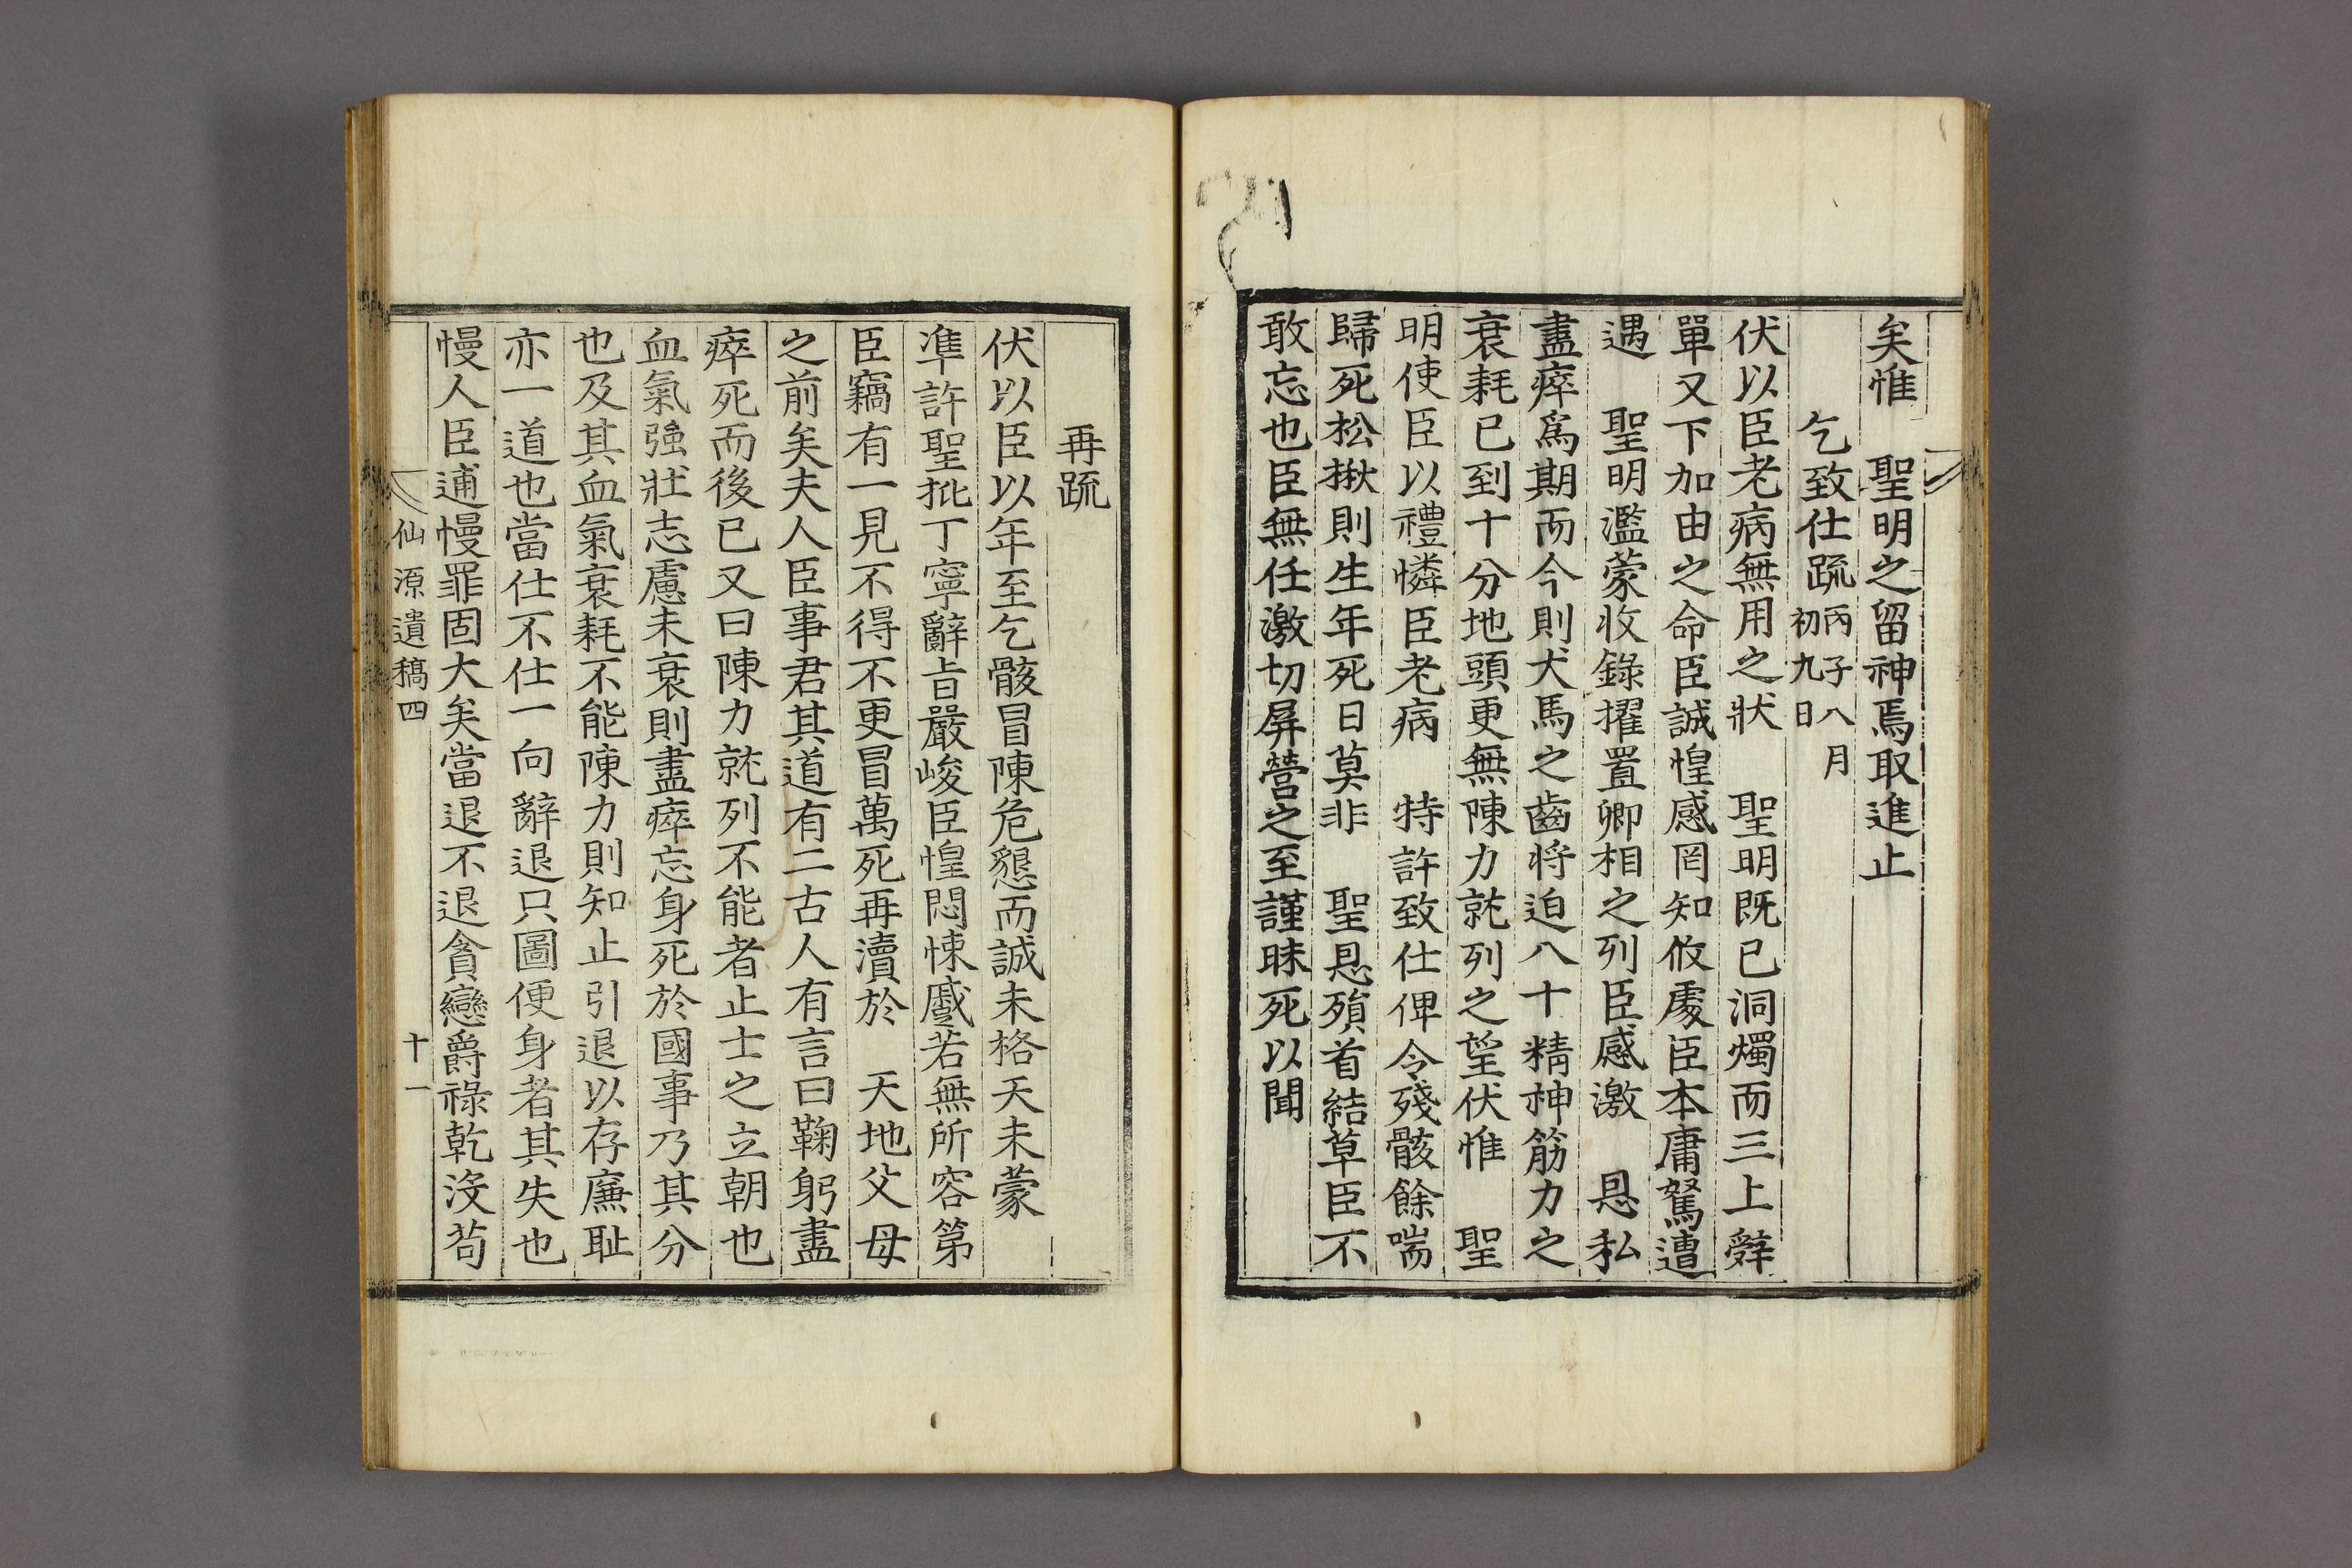 矣惟　聖明之留神焉取進止
乞致仕疏丙子八月初九日
伏以臣老病無用之狀　聖明既已洞燭而三上辭
單又下加由之命臣誠惶感罔知攸處臣本庸駑遭
遇　聖明濫蒙收錄擢置卿相之列臣感激　恩私
盡瘁爲期而今則犬馬之齒將迫八十精神筋力之
衰耗已到十分地頭更無陳力就列之望伏惟　聖
明使臣以禮憐臣老病　特許致仕俾令殘骸餘喘
歸死松楸則生年死日莫非　聖恩殞首結草臣不
敢忘也臣無任激切屏營之至謹昧死以聞
再疏
伏以臣以年至乞骸冒陳危懇而誠未格天未蒙
準許聖批丁寧辭旨嚴峻臣惶悶悚蹙若無所容第
臣竊有一見不得不更冒萬死再瀆於　天地父母
之前矣夫人臣事君其道有二古人有言曰鞠躬盡
瘁死而後已又曰陳力就列不能者止士之立朝也
血氣強壯志慮未衰則盡瘁忘身死於國事乃其分
也及其血氣衰耗不能陳力則知止引退以存廉耻
亦一道也當仕不仕一向辭退只圖便身者其失也
慢人臣逋慢罪固大矣當退不退貪戀爵祿乾沒苟
仙源遺稿四　十一